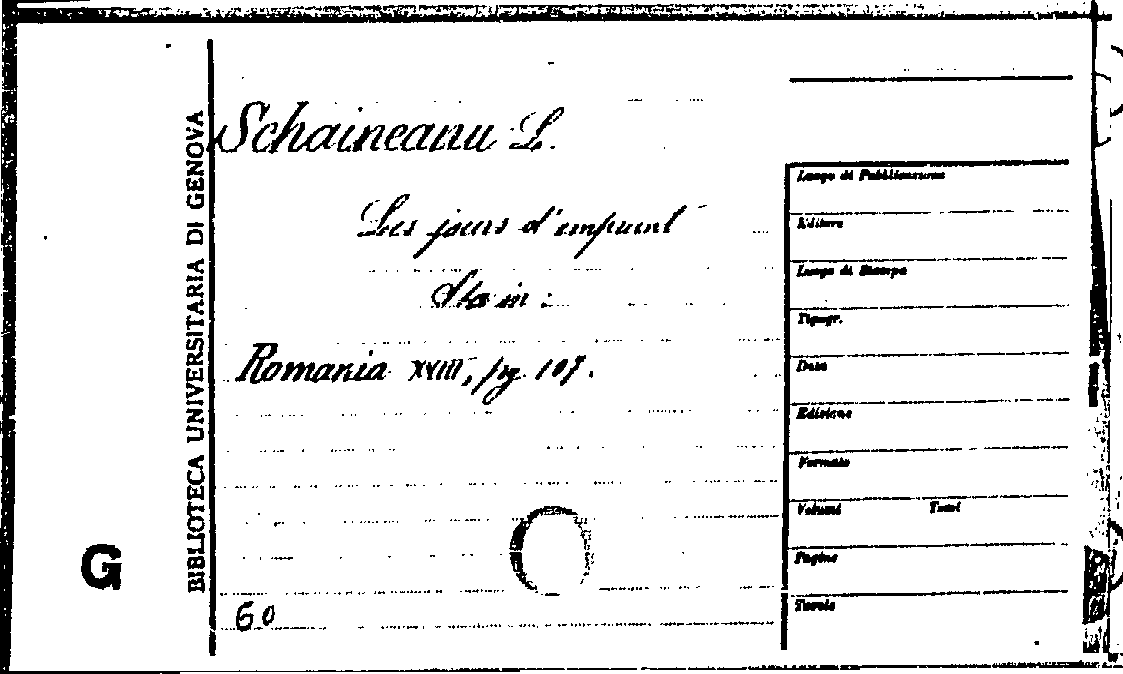 Schaineanu L.
Les jours d'emprunt
Sta in :
Romania XVIII, pg. 107.
60
G
BIBLIOTECA UNIVERSITARIA DI GENOVA
Luogo di Pubblicazione
Editore
Luogo di Stampa
Tipogr.
Data
Edizione
Formato
Volumi Tomi
Pagine
Tavole